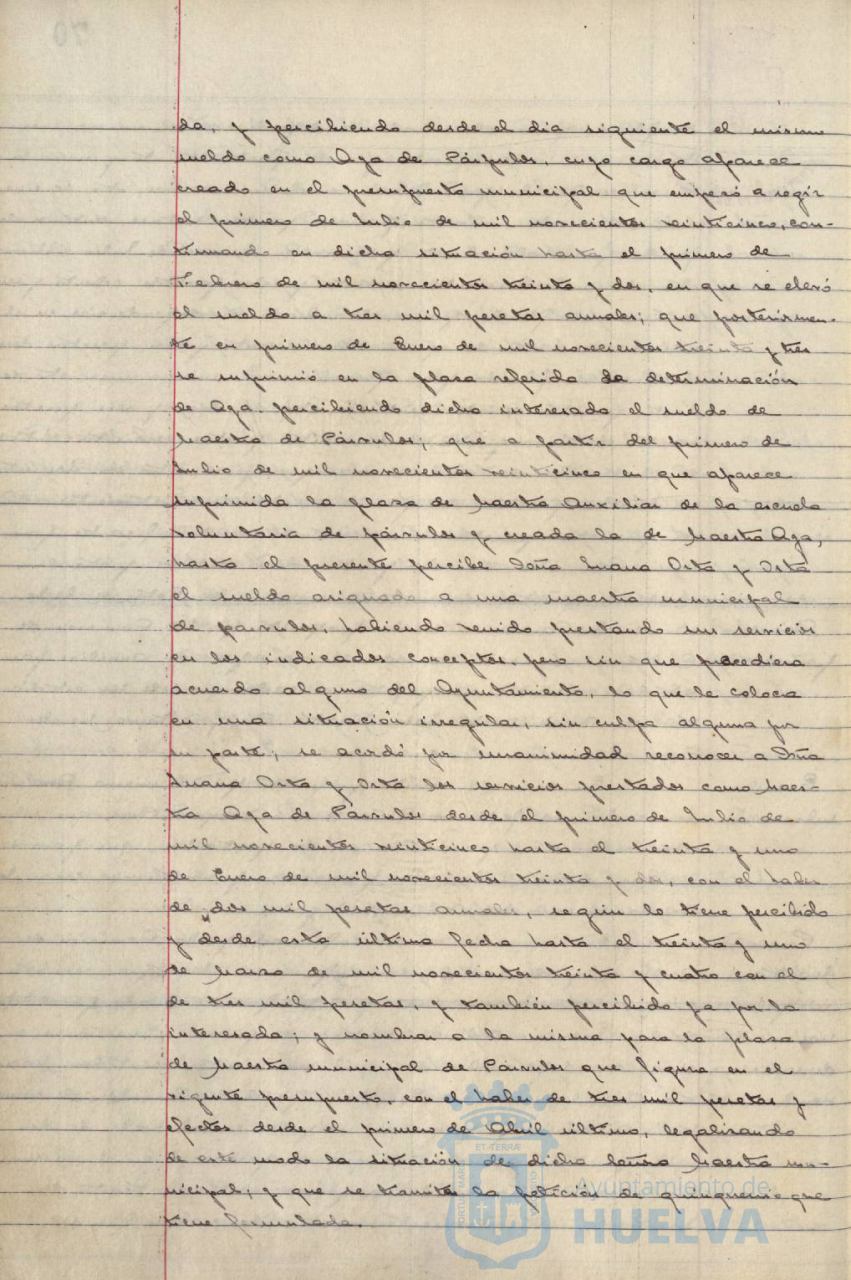 da, y percibiendo desde el dia siguiente el mismo
sueldo como Aya de Párvulos, cuyo cargo aparece
creado en el presupuesto municipal que empezó a regir
el primero de Julio de mil novecientos veinticinco, con-
tinuando en dicha situación hasta el primero de
Febrero de mil novecientos treinta y dos, en que se elevó
el sueldo a tres mil pesetas anuales; que posteriormen-
te en primero de Enero de mil novecientos treinta y tres
se suprimió en la plaza referida la determinación
de Aya percibiendo dicha interesada el sueldo de
Maestra de Párvulos; que a partir del primero de
Julio de mil novecientos veinticinco en que aparece
suprimida la plaza de Maestra Auxiliar de la escuela
voluntaria de párvulos y creada la de Maestra Aya,
hasta el presente percibe Doña Juana Orta y Orta
el sueldo asignado a una maestra municipal
de párvulos, habiendo venido prestando sus servicios
en los indicados conceptos, pero sin que precediera
acuerdo alguno del Ayuntamiento, lo que le coloca
en una situación irregular, sin culpa alguna por
su parte; se acordó por unanimidad reconocer a Doña
Juana Orta y Orta los servicios prestados como Maes-
tra Aya de Párvulos desde el primero de Julio de
mil novecientos veinticinco hasta el treinta y uno
de Enero de mil novecientos treinta y dos, con el haber
de dos mil pesetas anuales, según lo tiene percibido
y desde esta última fecha hasta el treinta y uno
de Marzo de mil novecientos treinta y cuatro con el
de tres mil pesetas, y también percibido ya por la
interesada; y nombrar a la misma para la plaza
de Maestra municipal de Párvulos que figura en el
vigente presupuesto, con el haber de tres mil pesetas y
efectos desde el primero de Abril último, legalizando
de este modo la situación de dicha señora Maestra mu-
nicipal; y que se tramite la petición de quinquenio que
tiene formulada.
ET TERRÆ
Ayuntamiento de
HUELVA